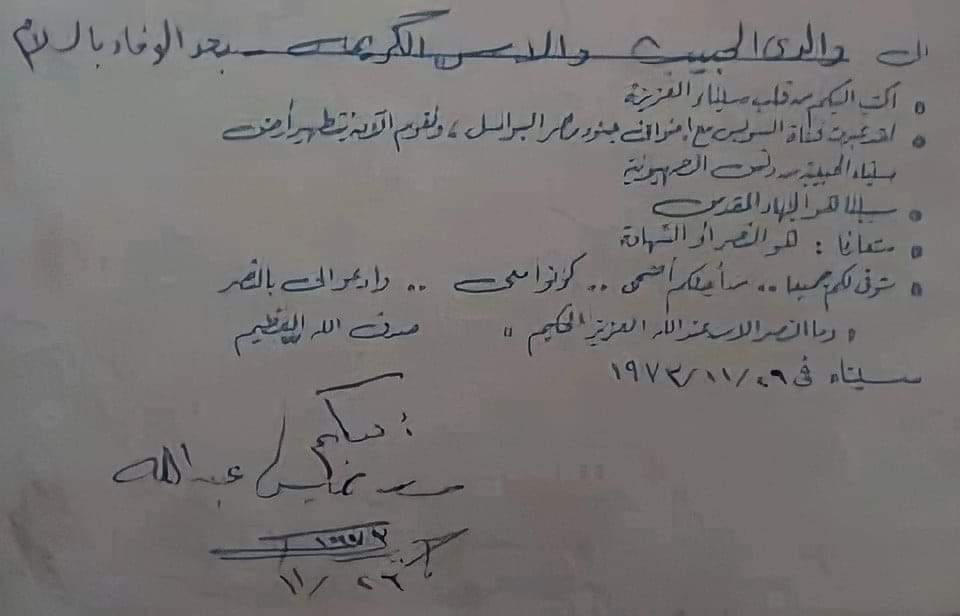 إلى والدى الحبيب والأسرة الكريمة بعد الوفاء بالسلام
• اكتب اليكم من قلب سيناء العزيزة
• لقد عبرت قناة السويس مع إخوانى جنود مصر البواسل، ونقوم الآن بتطهير أرض
سيناء الحبيبة من دنس الصهيونية
• سبيلنا هو الجهاد المقدس
• متعانا : هو النصر أو الشهادة
• شوقى لكم جميعا .. كونوا معى .. وادعوا لى بالنصر
" وما النصر إلا من عند الله العزيز الحكيم " صدق الله العظيم
سيناء فى ٢٩/١١/١٩٧٣
عبد الله
١٩٧٣
١١/٢٦